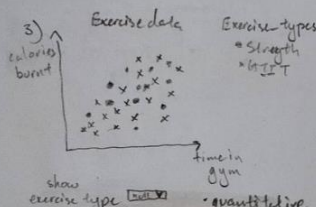 3) Exercise data
Exercise types
• Strength
x HIIT
calories
burnt
time in
gym
show
exercise type
• quantitative